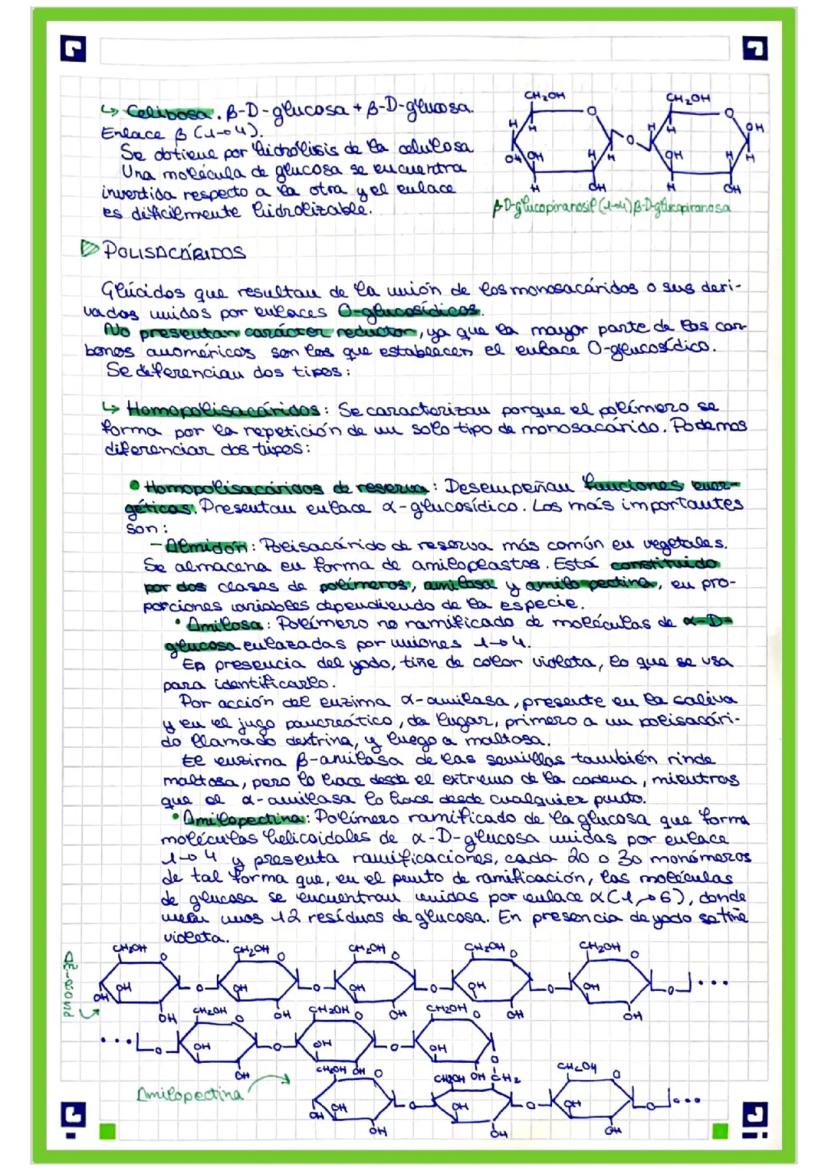 ↳ Celibosa. β-D-glucosa + β-D-glucosa.
Enlace β (1→4).
Se obtiene por hidrólisis de la celulosa
Una molécula de glucosa se encuentra
invertida respecto a la otra y el enlace
es dificilmente hidrolizable.
CH₂OH CH₂OH
O O
H H H H OH
O
OH OH H H OH H H
H OH H OH
β-D-glucopiranosil (1→4) β-D-glucopiranosa
▷ POLISACÁRIDOS
Glúcidos que resultan de la unión de los monosacáridos o sus deri-
vados unidos por enlaces O-glucosídicos.
No presentan carácter reductor, ya que la mayor parte de los car-
bonos anoméricos son los que establecen el enlace O-glucosídico.
Se diferencian dos tipos:
↳ Homopolisacáridos: Se caracterizan porque el polímero se
forma por la repetición de un solo tipo de monosacárido. Podemos
diferenciar dos tipos:
• Homopolisacáridos de reserva: Desempeñan funciones ener-
géticas. Presentan enlace α-glucosídico. Los más importantes
son:
- Almidón: Polisacárido de reserva más común en vegetales.
Se almacena en forma de amiloplastos. Está constituido
por dos clases de polímeros, amilosa y amilopectina, en pro-
porciones variables dependiendo de la especie.
• Amilosa: Polímero no ramificado de moléculas de α-D-
glucosa enlazadas por uniones 1→4.
En presencia del yodo, tiñe de color violeta, lo que se usa
para identificarlo.
Por acción del enzima α-amilasa, presente en la saliva
y en el jugo pancreático, da lugar, primero a un polisacári-
do llamado dextrina, y luego a maltosa.
El enzima β-amilasa de las semillas también rinde
maltosa, pero lo hace desde el extremo de la cadena, mientras
que el α-amilasa lo hace desde cualquier punto.
• Amilopectina: Polímero ramificado de la glucosa que forma
moléculas helicoidales de α-D-glucosa unidas por enlace
1→4 y presenta ramificaciones, cada 20 o 30 monómeros
de tal forma que, en el punto de ramificación, las moléculas
de glucosa se encuentran unidas por enlace α(1→6), donde
unos 12 resíduos de glucosa. En presencia de yodo se tiñe
violeta.
CH₂OH CH₂OH CH₂OH CH₂OH CH₂OH
O O O O O
OH OH OH OH OH OH
O O O O O ...
OH OH OH OH OH
CH₂OH CH₂OH CH₂OH
O O O
... O OH O OH O OH
OH O
CH₂OH OH O CH₂OH OH CH₂ CH₂OH O
OH OH O OH O OH O ...
OH OH OH
Amilopectina